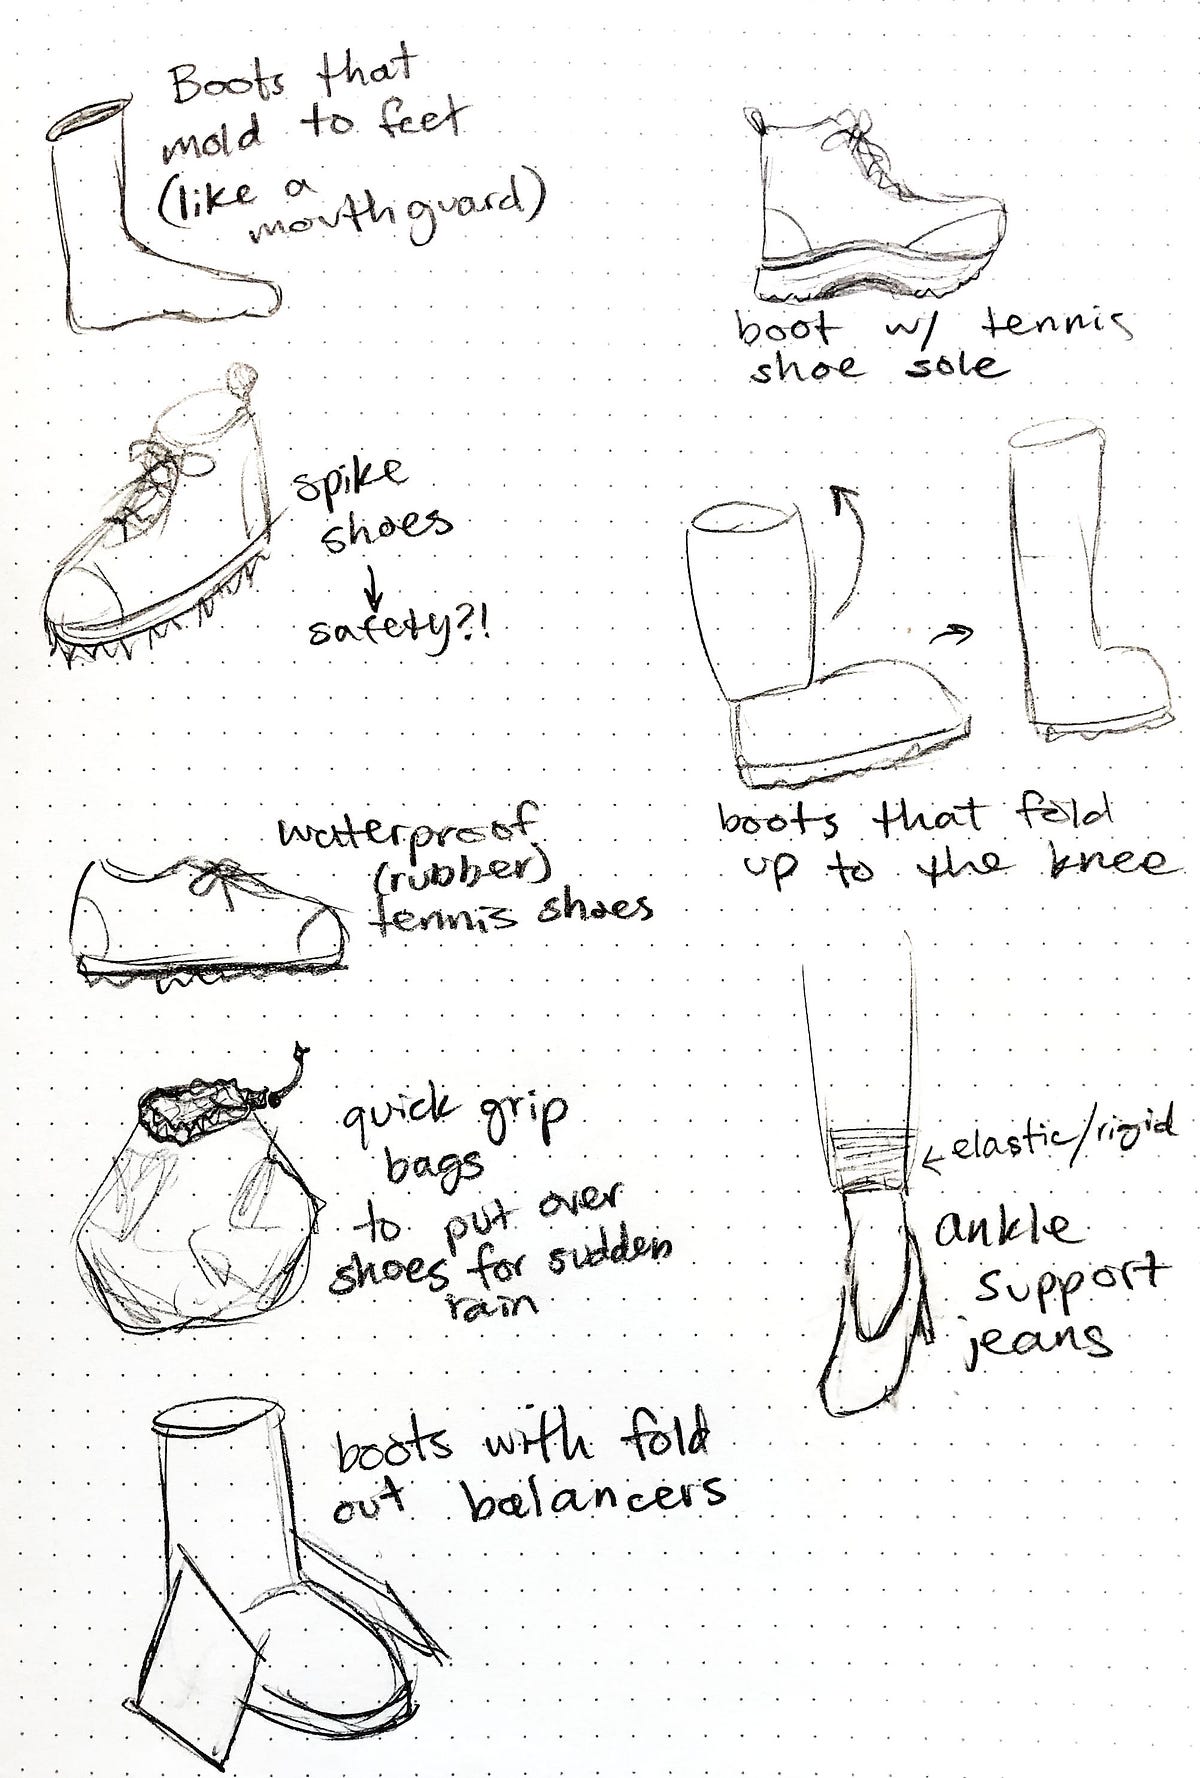 Boots that
mold to feet
(like a
mouthguard)
boot w/ tennis
shoe sole
spike
shoes
safety?!
boots that fold
up to the knee
waterproof
(rubber)
tennis shoes
quick grip
bags
to put over
shoes for sudden
rain
elastic/rigid
ankle
support
jeans
boots with fold
out balancers